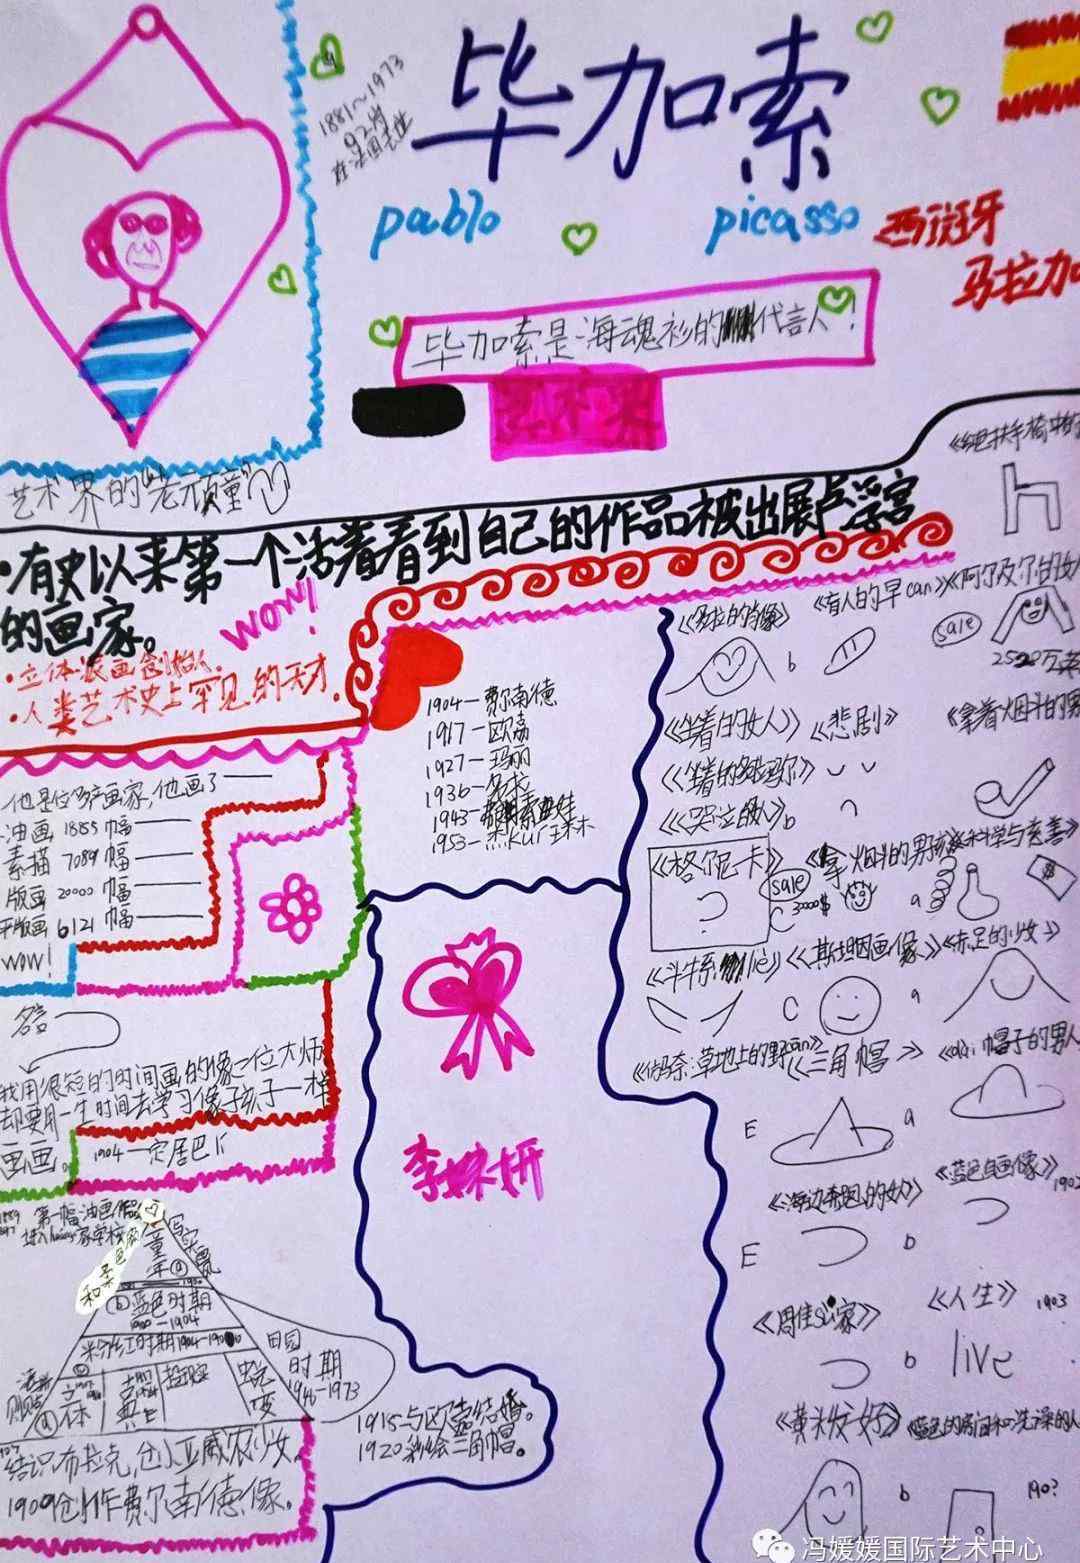 毕加索
1881～1973
92岁
在法国去世
pablo picasso
西班牙
马拉加
毕加索是海魂衫的代言人!
艺术界的"老顽童"
·有史以来第一个活着看到自己的作品被出展卢浮宫
的画家。
wow!
·立体派画创始人.
·人类艺术史上罕见的天才.
他是位多产画家,他画了
油画 1885 幅
素描 7089 幅
版画 20000 幅
平版画 6121 幅
wow!
名言
我用很短的时间画的像一位大师
却要用一生时间去学习像孩子一样
画画。
1904—定居巴黎
1904—费尔南德
1917—欧嘉
1927—玛丽
1936—多拉
1943—
1953—
李姝妍
第一幅油画作品
童年
写实
蓝色时期
1900—1904
粉红时期
田园
时期
1946—1973
立体
古典
超现实
蜕变
结识布拉克,
亚威农少女
1909创作费尔南德像。
1918与欧嘉结婚。
1920彩绘三角帽。
《多拉的肖像》
b
《有人的早can》
《阿尔及尔的女人
sale
《坐着的女人》
《悲剧》
《拿着烟斗的男
《哭泣的人》
b
《格尔尼卡》
sale
c
《拿烟斗的男孩》
a
《科学与慈善》
《斗牛系lie》
c
《斯坦因画像》
a
《赤足的少女》
草地上的野can》
E
《三角帽》
a
帽子的男人
《海边奔跑的女人》
E
b
《蓝色自画像》
b
《人生》
1903
live
b
《蓝色的房间和洗澡的人
190?
冯媛媛国际艺术中心